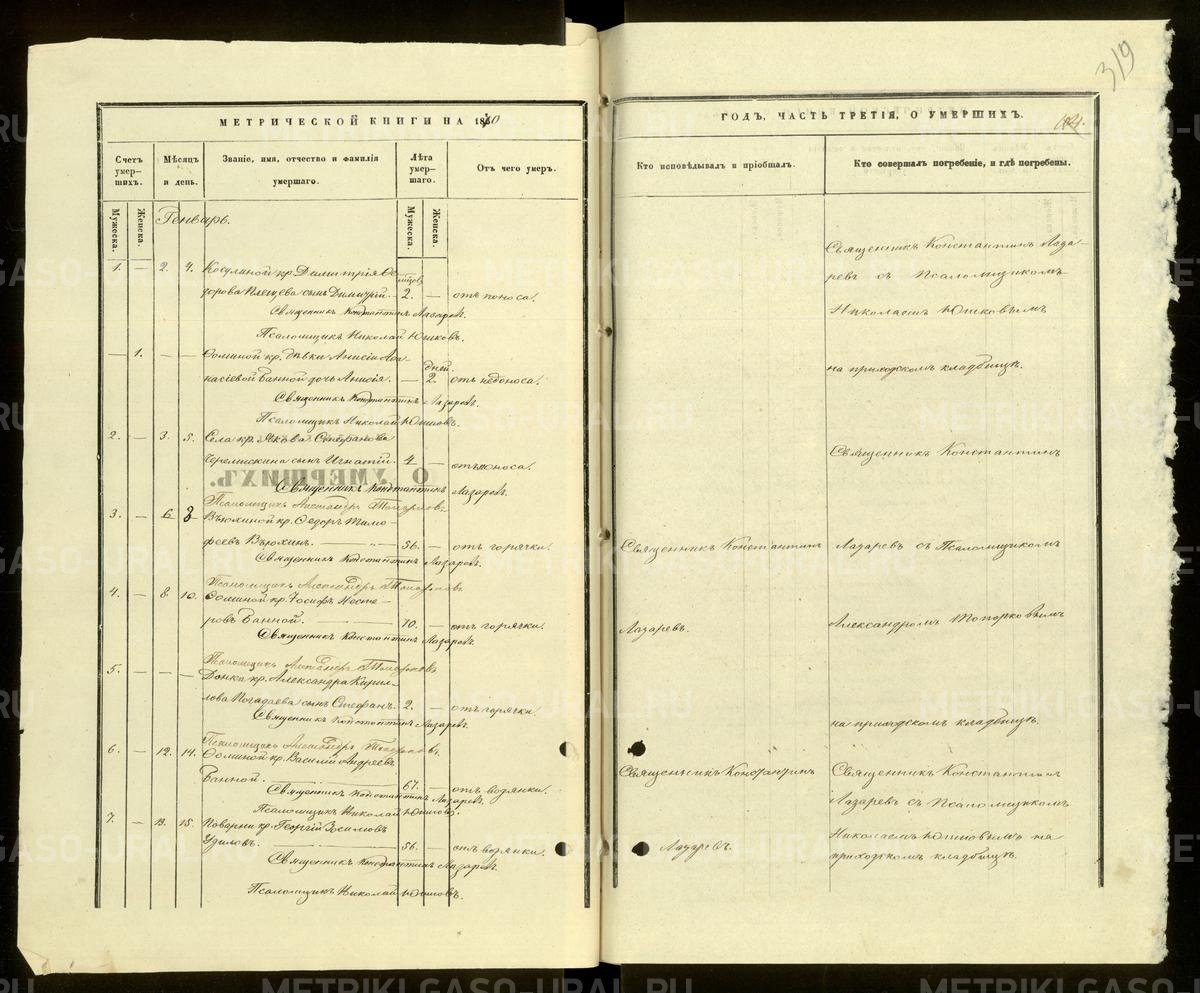 319
МЕТРИЧЕСКОЙ КНИГИ НА 1880
Счетъ умер-шихъ.
Мѣсяцъ и день.
Званіе, имя, отчество и фамилія умершаго.
Лѣта умер-шаго.
Отъ чего умеръ.
Мужеска.
Женска.
Мужеска.
Женска.
Генварь.
1. — 2. 4. Косулиной кр. Димитрія Ѳе-
дорова сынъ Димитрій. — 2. — отъ поноса.
Священникъ Константинъ Лазаревъ.
Псаломщикъ Николай Юшковъ.
— 1. — — Ѳоминой кр. дѣвки Анисіи Аѳа-
дней.
насіевой Банной дочь Анисія. — 2. отъ недоноса.
Священникъ Константинъ Лазаревъ.
Псаломщикъ Николай Юшковъ.
2. — 3. 5. Села кр. Якова Стефанова
Черемискина сынъ Игнатій. 4 — отъ поноса.
Священникъ Константинъ Лазаревъ.
Псаломщикъ Александръ Топорковъ
3. — 6 8 Вьюхиной кр. Ѳедоръ Тимо-
феевъ Вьюхинъ. — 56. — отъ горячки.
Священникъ Константинъ Лазаревъ.
Псаломщикъ Александръ Топорковъ
4. — 8. 10. Ѳоминой кр. Іосифъ Несте-
ровъ Банной. — 70. — отъ горячки.
Священникъ Константинъ Лазаревъ.
Псаломщикъ Александръ Топорковъ.
5. — — — кр. Александра Кирил-
лова Погадаева сынъ Стефанъ. 2. — отъ горячки.
Священникъ Константинъ Лазаревъ.
Псаломщикъ Александръ Топорковъ.
6. — 12. 14. Ѳоминой кр. Василій Андреевъ
Банной. — 67. — отъ водянки.
Священникъ Константинъ Лазаревъ.
Псаломщикъ Николай Юшковъ.
7. — 13. 15. кр. Георгій Зосимовъ
Удиловъ. — 56. — отъ водянки.
Священникъ Константинъ Лазаревъ.
Псаломщикъ Николай Юшковъ.
О УМЕРШИХЪ.
ГОДЪ, ЧАСТЬ ТРЕТІЯ, О УМЕРШИХЪ.
Кто исповѣдывалъ и пріобщалъ.
Кто совершалъ погребеніе, и гдѣ погребены.
Священникъ Константинъ Лаза-
ревъ съ Псаломщикомъ
Николаемъ Юшковымъ
на приходскомъ кладбищѣ.
Священникъ Константинъ
Священникъ Константинъ Лазаревъ съ Псаломщикомъ
Лазаревъ. Александромъ Топорковымъ
на приходскомъ кладбищѣ.
Священникъ Константинъ Священникъ Константинъ
Лазаревъ съ Псаломщикомъ
Николаемъ Юшковымъ на
Лазаревъ. приходскомъ кладбищѣ.
METRIKI.GASO-URAL.RU